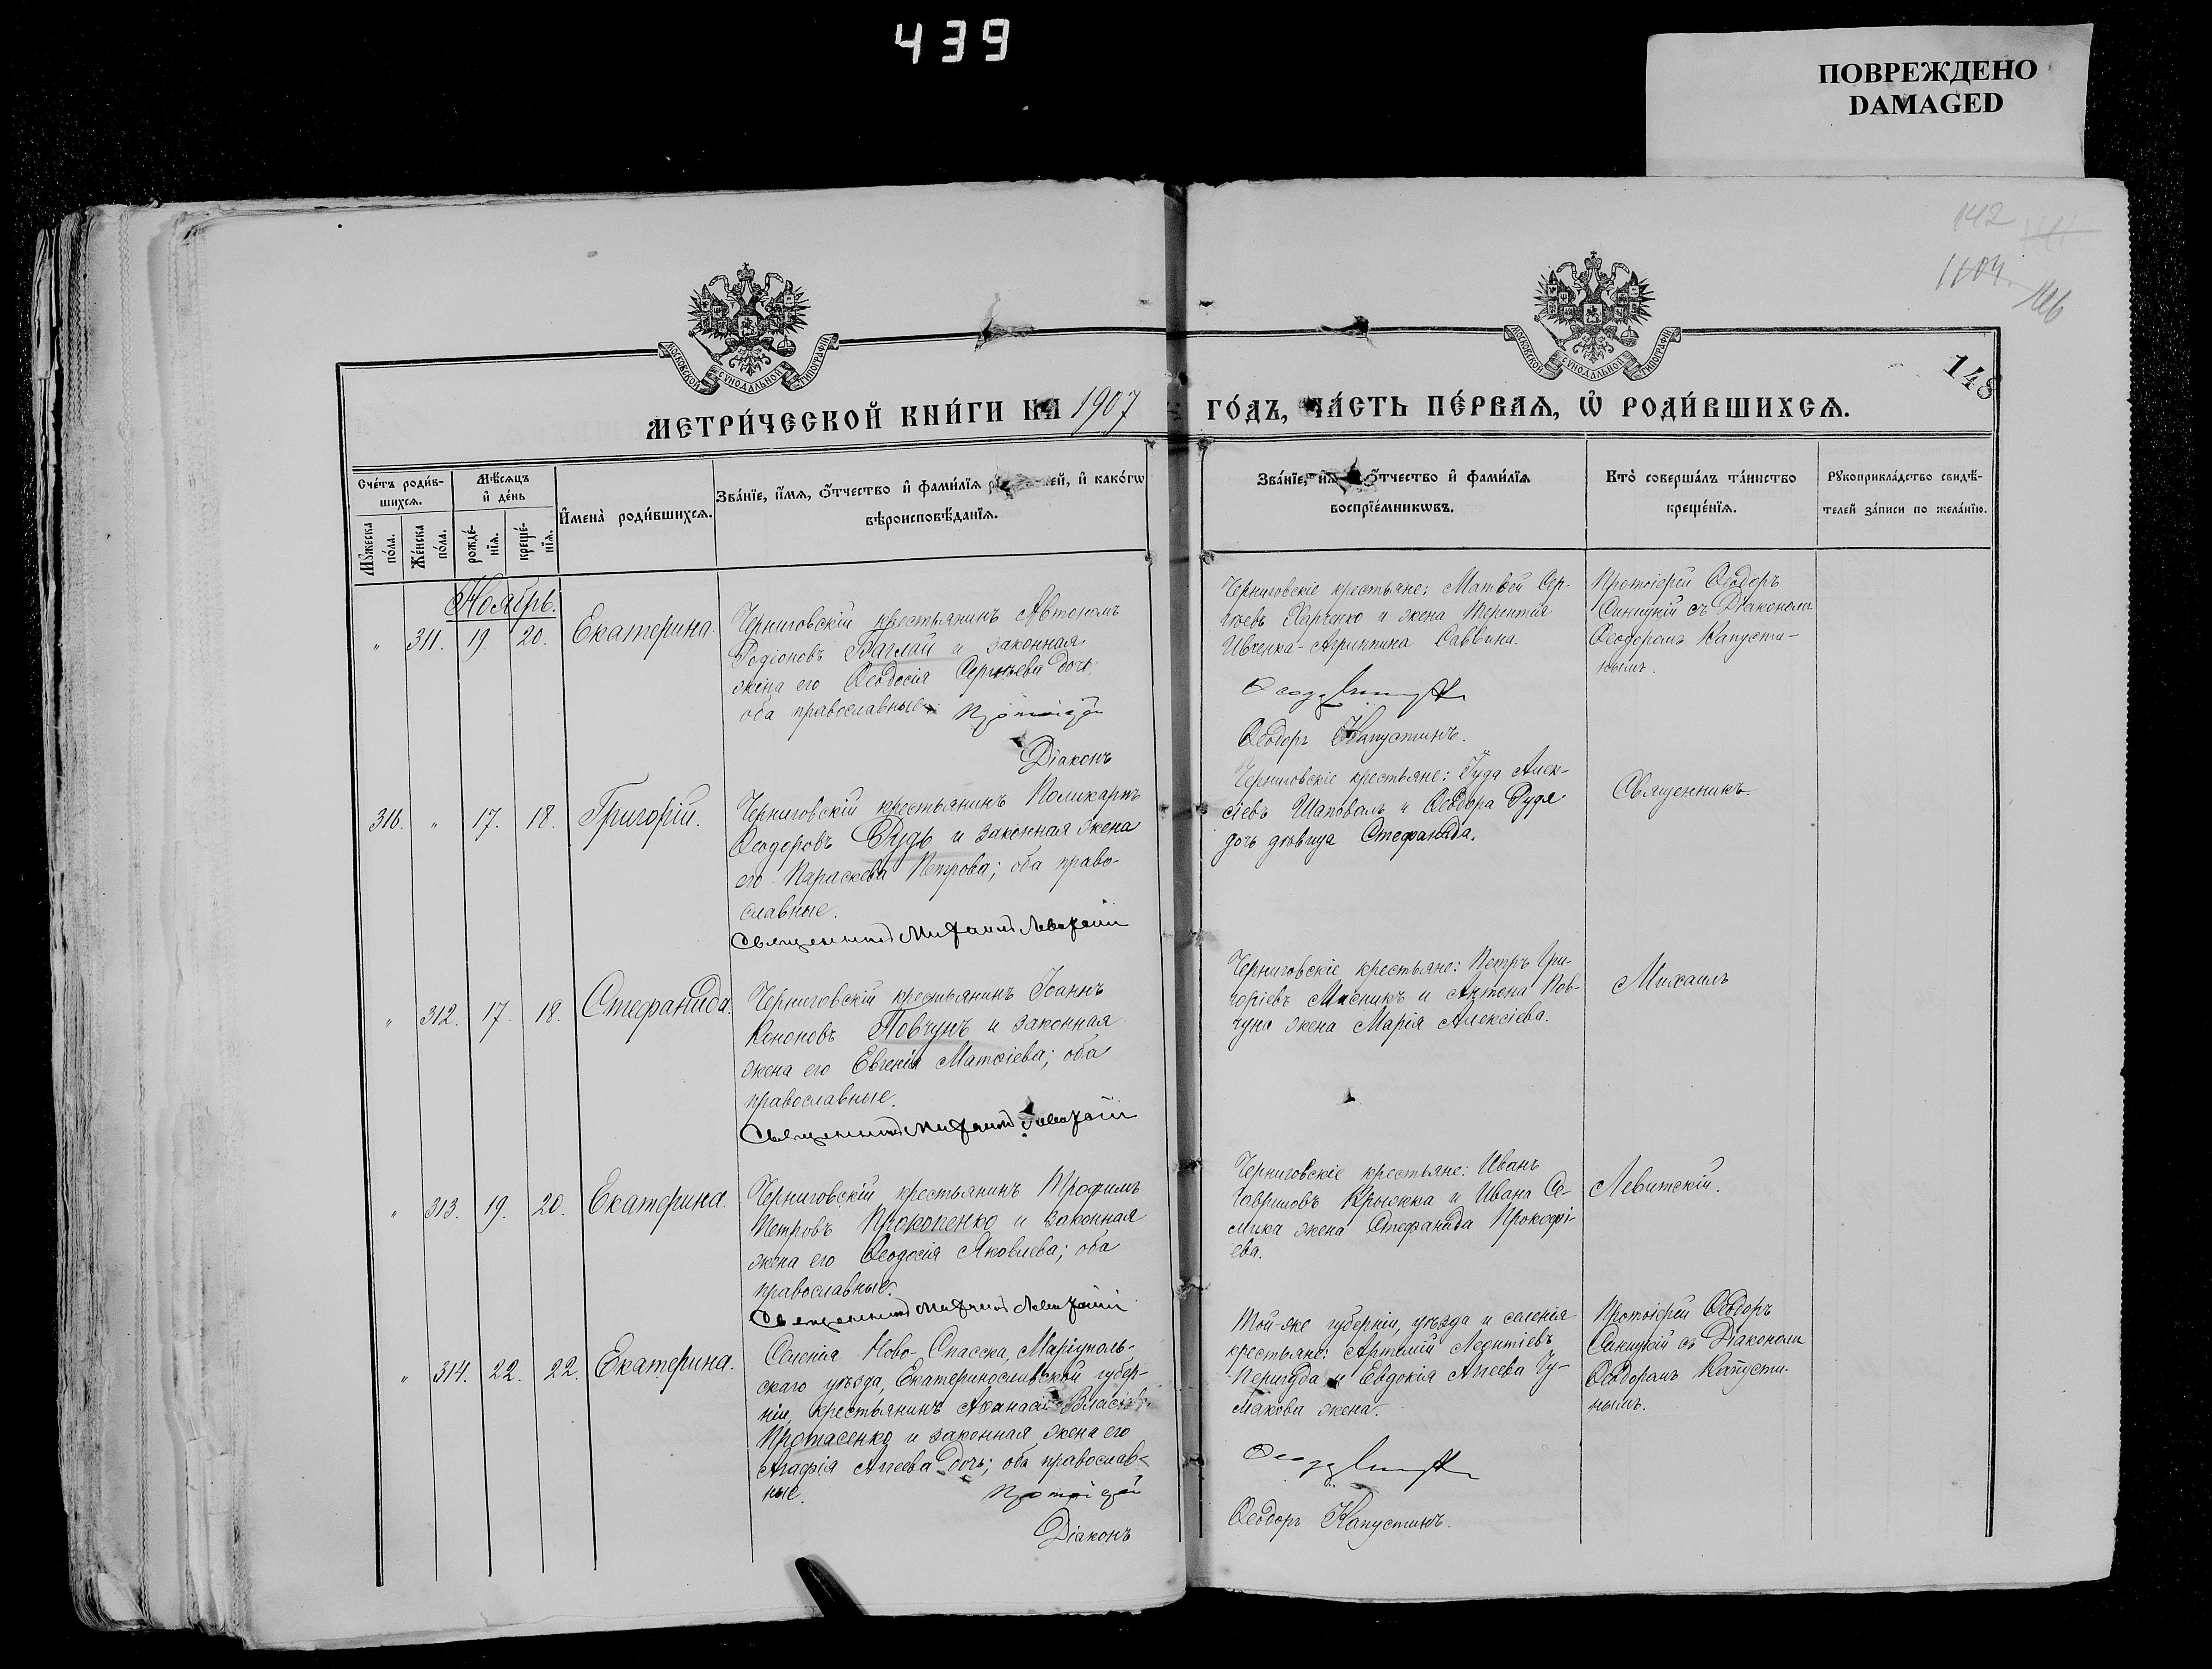 439
ПОВРЕЖДЕНО
DAMAGED
142
148
МОСКОВСКОЙ СѴНОДАЛЬНОЙ ТИПОГРАФІИ
МОСКОВСКОЙ СѴНОДАЛЬНОЙ ТИПОГРАФІИ
МЕТРИ́ЧЕСКОЙ КНИ́ГИ НА 1907 ГО́ДЪ, ЧА́СТЬ ПЕ́РВАЯ, Ѡ РОДИ́ВШИХСЯ.
Сче́тъ роди́в-
шихся.
Мѣ́сяцъ
и де́нь
Мꙋжеска по́ла.
Же́нска по́ла.
рожде́-
нїя.
креще́-
нїя.
Имена̀ роди́вшихся.
Зва́нїе, и́мя, о́тчество и фами́лїя ей, и како́гѡ
вѣроисповѣ́данїя.
Зва́нїе, о́тчество и фами́лїя
воспрїе́мникѡвъ.
Кто̀ соверша́лъ та́инство
креще́нїя.
Рꙋкоприкла́дство свидѣ́-
телей за́писи по жела́нїю.
Ноябрь.
" 311. 19. 20. Екатерина.
Черниговскій крестьянинъ Автономъ
Родіоновъ Баглай и законная
жена его Ѳеодосія Сергѣева дочь,
оба православные. Протоіерей
Діаконъ
Черниговскіе крестьяне: Матвей Сер-
гѣевъ Харченко и жена Терентія
Ивченка - Агриппина Саввина.
Ѳеодоръ Капустинъ.
Протоіерей Ѳеодоръ
Синицкій съ Діакономъ
Ѳеодоромъ Капусти-
нымъ.
316. " 17. 18. Григорій.
Черниговскій крестьянинъ Поликарпъ
Ѳеодоровъ Рудь и законная жена
его Параскева Петрова; оба право-
славные.
Священникъ Михаилъ Левитскій
Черниговскіе крестьяне: Іуда Алек-
сіевъ Шаповалъ и Ѳеодора Рудя
дочь дѣвица Стефанида.
Священникъ
" 312. 17. 18. Стефанида.
Черниговскій крестьянинъ Іоаннъ
Кононовъ Повчунъ и законная
жена его Евгенія Матѳіева; оба
православные.
Священникъ Михаилъ Левитскій
Черниговскіе крестьяне: Петръ Гри-
горіевъ Мясникъ и Антона Пов-
чуна жена Марія Алексіева.
Михаилъ
" 313. 19. 20. Екатерина.
Черниговскій крестьянинъ Трофимъ
Петровъ Прокопенко и законная
жена его Ѳеодосія Яковлева; оба
православные.
Священникъ Михаилъ Левитскій
Черниговскіе крестьяне: Иванъ
Гавриловъ Крыжка и Ивана Се-
мика жена Стефанида Прокофі-
ева.
Левитскій.
" 314. 22. 22. Екатерина.
Селенія Ново-Спасска, Маріуполь-
скаго уѣзда, Екатеринославской губер-
ніи, крестьянинъ Аѳанасій Власіевъ
Протасенко и законная жена его
Агафія Агеева дочь; оба православ-
ные. Протоіерей
Діаконъ
Той-же губерніи, уѣзда и селенія
крестьяне: Артемій Леонтіевъ
и Евдокія Агеева Чу-
макова жена.
Ѳеодоръ Капустинъ.
Протоіерей Ѳеодоръ
Синицкій съ Діакономъ
Ѳеодоромъ Капусти-
нымъ.